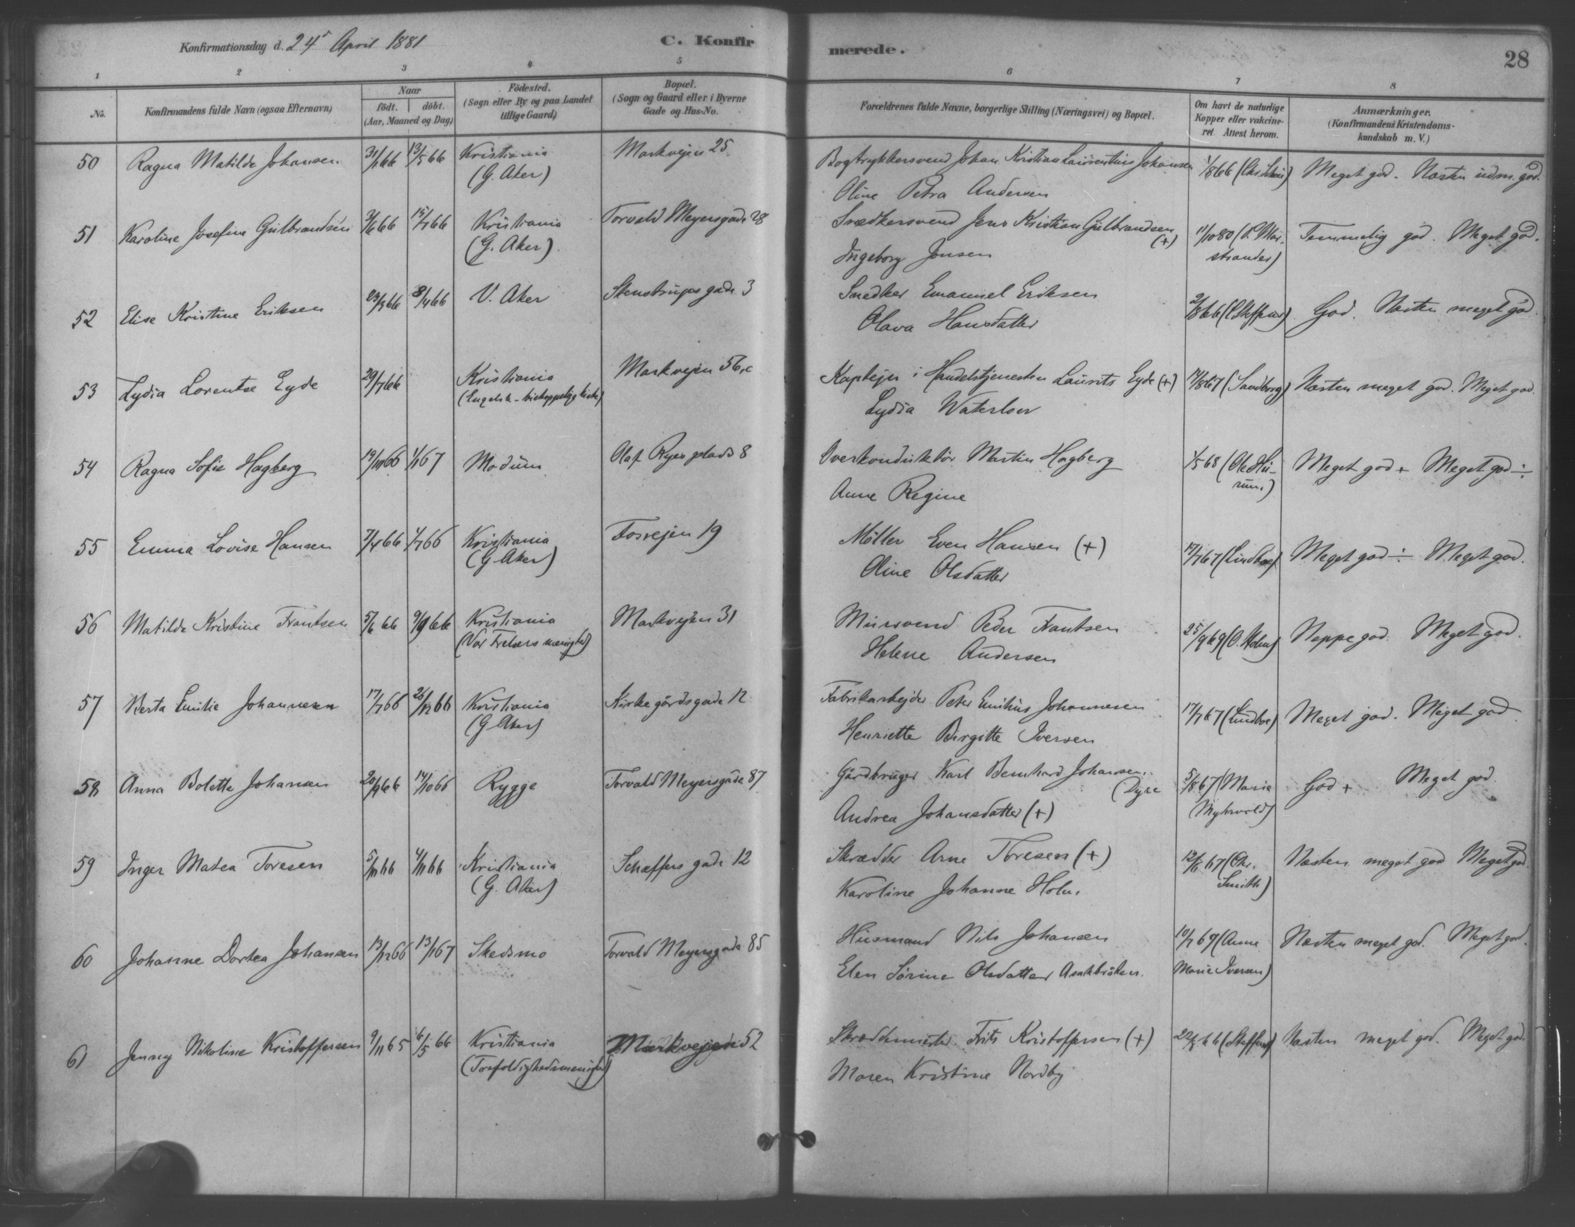 Konfirmationsdag d. 24' April 1881
C. Konfirmerede.
28
1 2 3 4 5 6 7 8
No.
Konfirmandens fulde Navn (ogsaa Efternavn)
Naar
födt. döbt.
(Aar, Maaned og Dag)
Födested.
(Sogn eller By og paa Landet tillige Gaard)
Bopæl.
(Sogn og Gaard eller i Byerne Gade og Hus-No.
Forældrenes fulde Navne, borgerlige Stilling (Næringsvei) og Bopæl.
Om havt de naturlige Kopper eller vaccineret. Attest herom.
Anmærkninger.
(Konfirmandens Kristendomskundskab m. V.)
50 Ragna Matilde Johansen 31/1 66 13/5 66 Kristiania Markvejen 25. Bogtrykkersvend Johan Kristian Laurentius Johansen Meget god. Næsten udm. god.
(G. Aker) Oline Petra Andersen
51 Karoline Josefine Gulbrandsen 3/6 66 15/7 66 Kristiania Torvald Meyersgade 28 Snedkersvend Jens Kristian Gulbrandsen (+) 11/10 80 Temmelig god. Meget god.
(G. Aker) Ingeborg Jonsen
52 Elise Kristine Eriksen 23/2 66 8/4 66 V. Aker Stenstrups gade 3 Snedker Emanuel Eriksen God. Næsten meget god
Olava Hansdatter
53 Lydia Lorentse Eyde 29/7 66 Kristiania Markvejen 56,c i Handelstjenesten Laurits Eyde (+) (Sandberg) Næsten meget god. Meget god
(Engelsk-biskoppelig kirke) Lydia Waterloo
54 Ragna Sofie Hagberg 19/10 66 1/1 67 Modum Olaf Ryes plads 8 Overkonduktör Martin Hagberg 1/5 68 Meget god + Meget god ÷
Anne Regine
55 Emma Lovise Hansen 7/4 66 1/7 66 Kristiania Fosvejen 19 Möller Even Hansen (+) 17/7 67 Meget god ÷ Meget god.
(G. Aker) Oline Olsdatter
56 Matilde Kristine Frantsen 5/6 66 9/9 66 Kristiania Markvejen 31 Mursvend Peder Frantsen 25/9 69 (O. Holm) Neppe god. Meget god.
(Vor Frelsers menighed) Helene Andersen
57 Berta Emilie Johannesen 17/7 66 26/12 66 Kristiania Kirkegårdsgade 12 Fabrikarbejder Peter Emilius Johannesen 17/7 67 Meget god. Meget god
(G. Aker) Henriette Birgitte Iversen
58 Anna Bolette Johansen 20/9 66 14/10 66 Rygge Torvald Meyersgade 87 Gårdbruger Karl Bernhard Johansen 5/8 67 (Marie God + Meget god.
(Dyre Andrea Johansdatter (+) Myhrvold)
59 Inger Matea Toresen 5/1 66 4/11 66 Kristiania Schæffers gade 12 Skrædder Arne Toresen (+) 12/6 67 (Chr. Næsten meget god Meget god.
(G. Aker) Karoline Johanne Holm. Smith)
60 Johanne Dortea Johansen 13/12 66 13/1 67 Skedsmo Torvald Meyersgade 85 Husmand Nils Johansen 10/7 69 (Anne Næsten meget god. Meget god.
Elen Sörine Olsdatter Marie Iversen)
61 Jenny Nikoline Kristoffersen 9/11 65 6/5 66 Kristiania Markvejen 52 Skræddermester Frits Kristoffersen (+) (Steffens) Næsten meget god. Meget god.
(Trefoldighedsmenighed) Maren Kristine Nordby